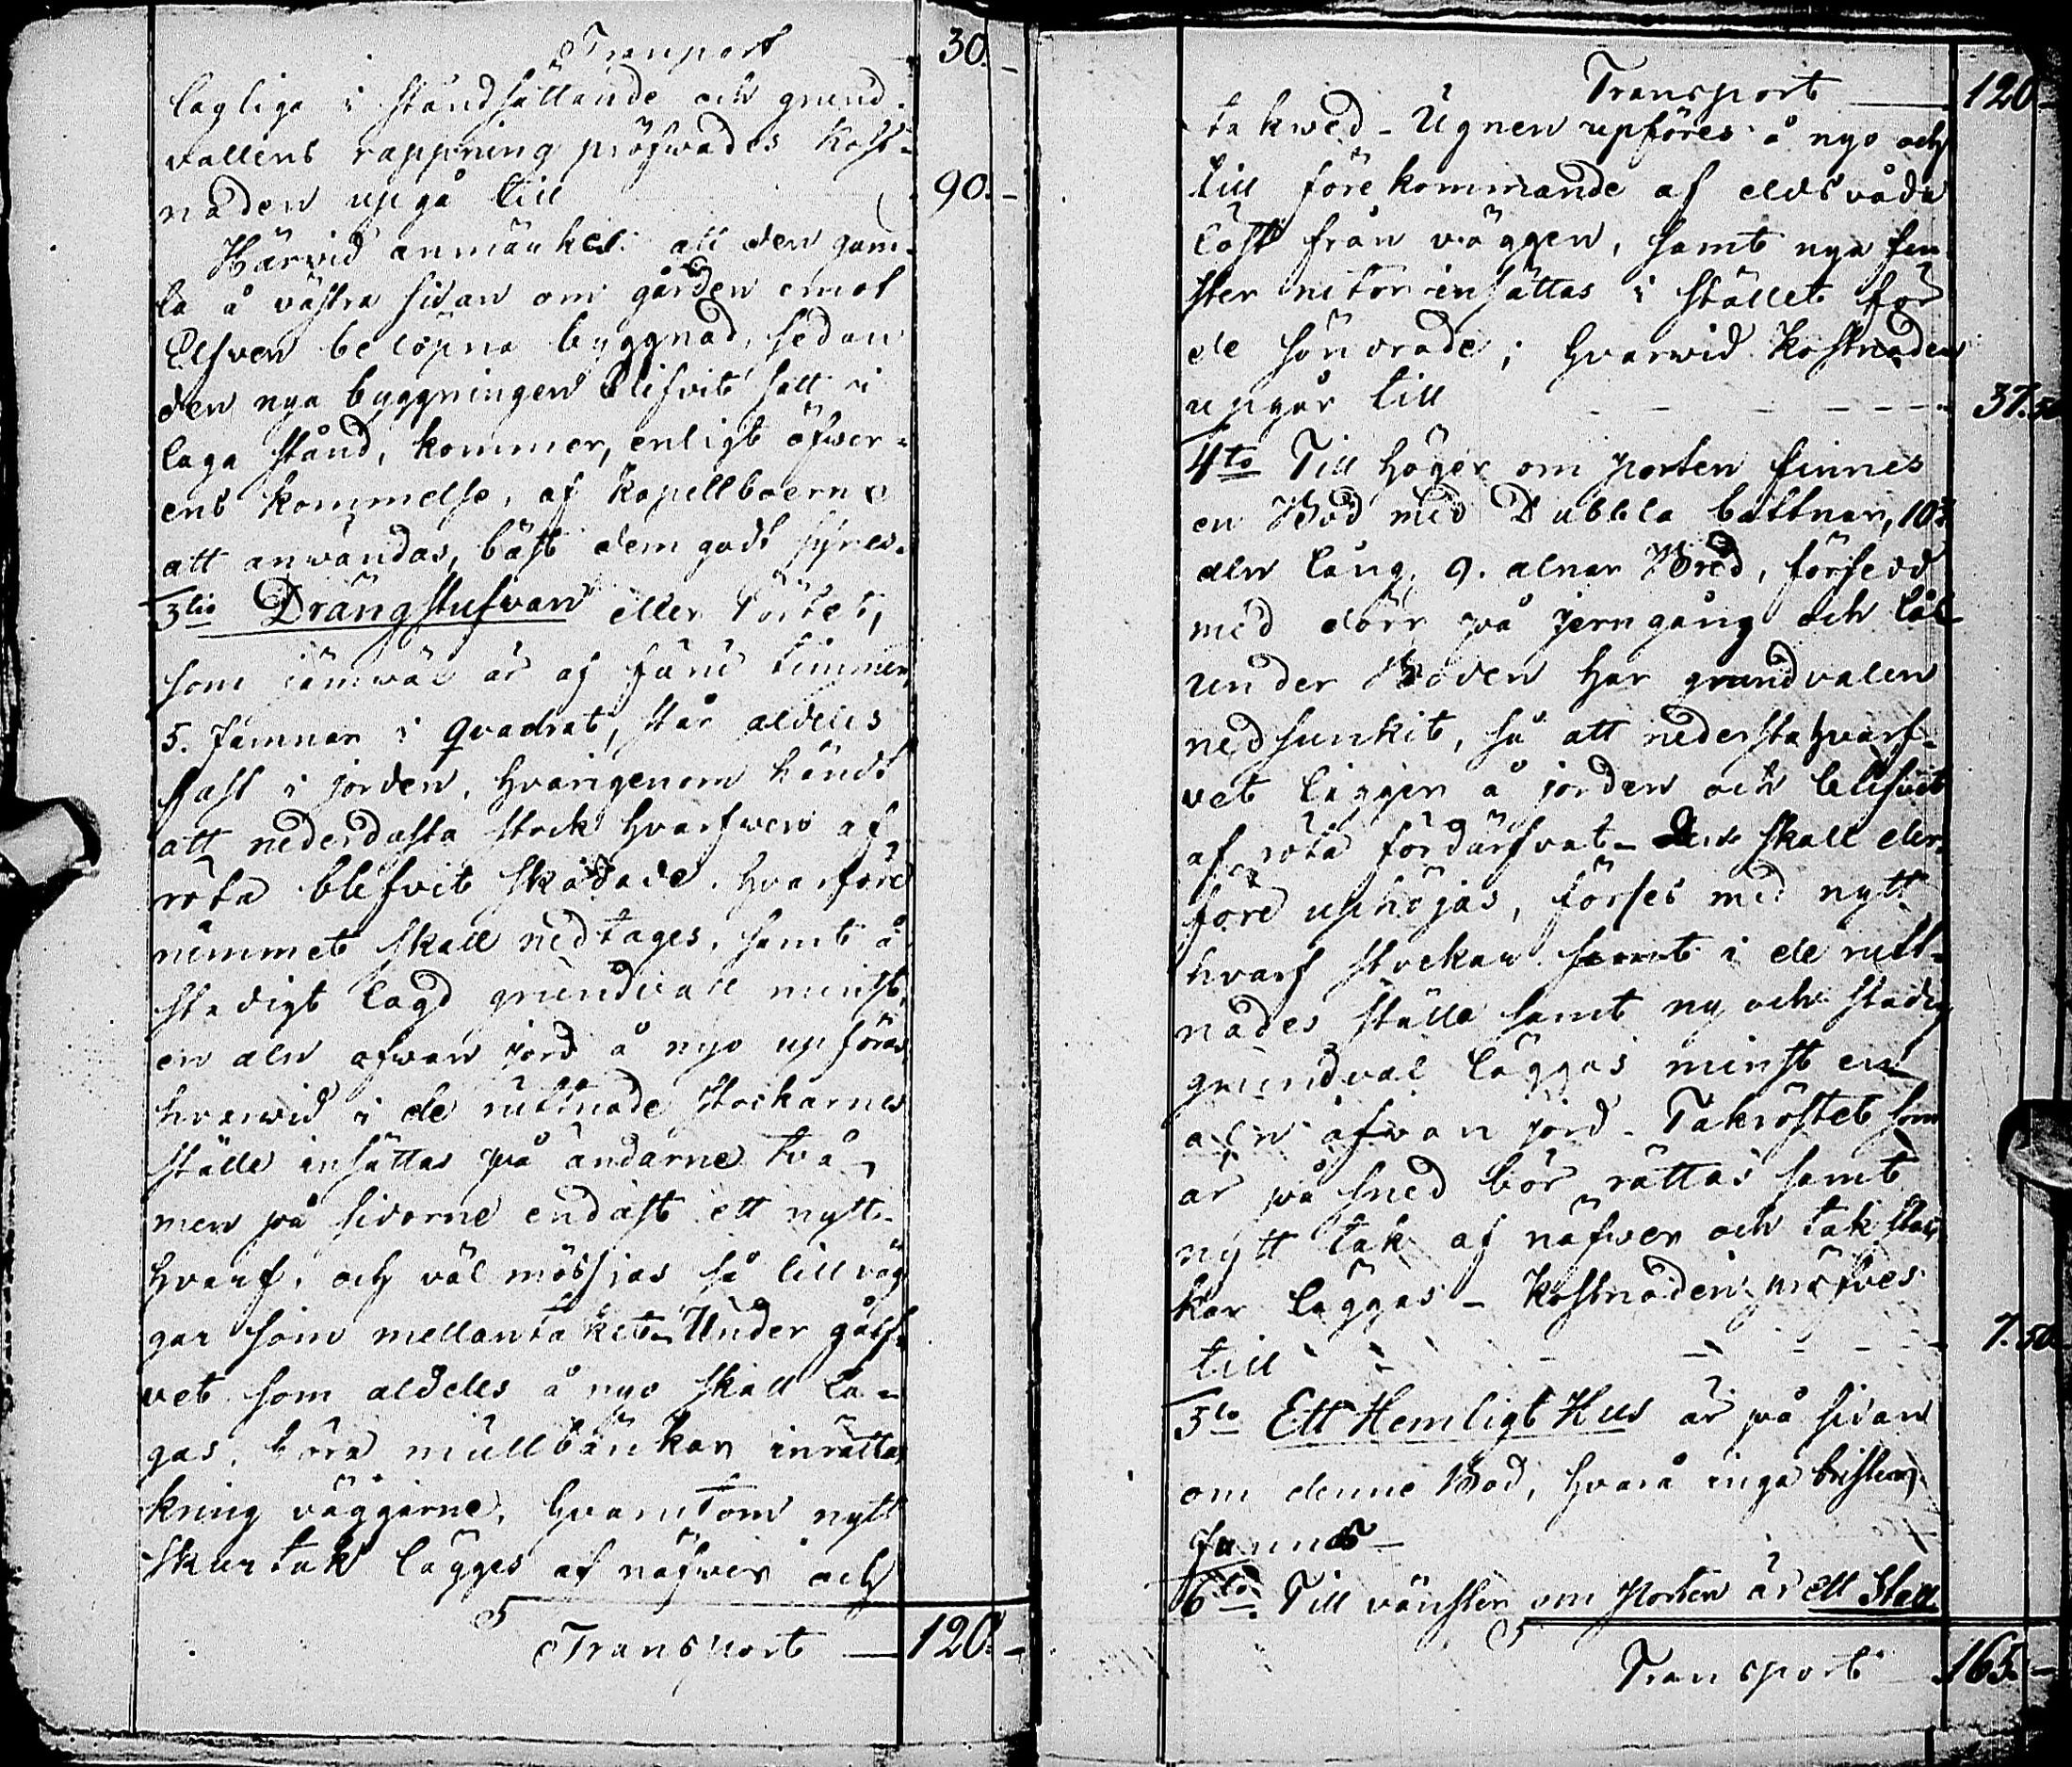 Transport 30. –
lagliga i ståndsättande och grund-
vallens rappning pröfwades kost-
naden upgå till 90. –
Härwid anmärkes: att den gam-
la å västra sidan om gården emot
Elfven belöpna byggnad, sedan
den nya byggningen blifvit satt i
laga stånd, kommer, enligt öfver-
ens kommelse, af kapellboerne
att anwändas, bäst dem godt synes.
3tio Drängstufvan eller Pörtet,
som jämwäl är af furu timmer,
5. famnar i Qvadrat, står aldeles
fast i jorden, hvarigenom händt
att nedersta stock hvarfwen af
röta blefvit skadade, hvarföre
rummet skall nedtages, samt å
stadigt lagd grundvall minst
en aln ofwan jord å nyo upföras,
hvarwid i de ruttnade stockarnes
ställe insättas på ändarne två,
men på sidorne endast ett nytt
hvarf, och väl mössjas så till väg
gar som mellantaket. Under gålf-
vet som aldeles å nyo skall la-
gas, böra mullbänkar inrättas
kring väggarne, hvarutom nytt
skurtak lägges af näfwer och
Transport — 120. –
Transport — 120 –
takwed – Ugnen upföres å nyo och
till förekommande af eldsvåda
löst från väggen, samt nya fen-
ster rutor insättas i stället för
de söndrade; hvarwid kostnaden
upgår till – – – – – – 37.50
4to Till höger om porten finnes
en Bod med Dubbla bottnar, 10½
aln lång, 9. alnar Bred, försedd
med dörr på jerngång och lås
under Boden har grundvalen
nedsunkit, så att nedersta hvarf-
vet ligger å jorden och blifvit
af röta fördärfvat – Den skall der-
före uphöjas, förses med nytt
hvarf stockar samt i de rutt-
nades ställe samt ny och stadig
grundval läggas minst en
aln ofvan jord – Takröstet som
är på sned bör rättas samt
nytt tak af näfwer och tak stoc
kar läggas – Kostnaden pröfves
till – – – – – – 7.50
5to Ett Hemligt Hus är på sidan
om denne Bod, hvarå inga brister
funnos –
6to. Till vänster om Porten är ett Stall
Transport 165. –